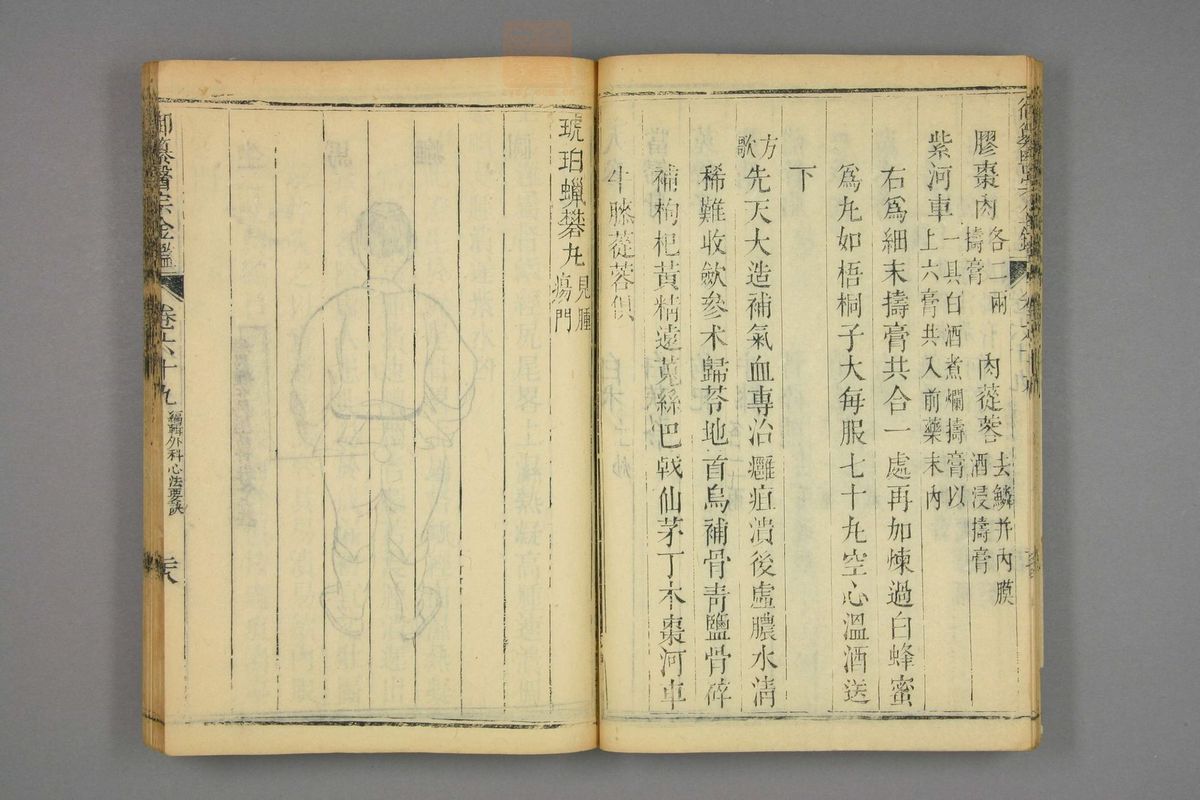 膠棗肉各二兩擣膏 肉蓯蓉去鱗并內膜酒浸擣膏
紫河車一具白酒煮爛擣膏以上六膏共入前藥末內
右為細末擣膏共合一處再加煉過白蜂蜜
為丸如梧桐子大每服七十丸空心溫酒送
下
方歌先天大造補氣血專治癰疽潰後虛膿水清
稀難收斂參朮歸苓地首烏補骨青鹽骨碎
補枸杞黃精遠菟絲巴戟仙茅丁木棗河車
牛膝蓯蓉俱
琥珀蠟礬丸見腫瘍門
御纂醫宗金鑑 卷六十九 編輯外科心法要訣